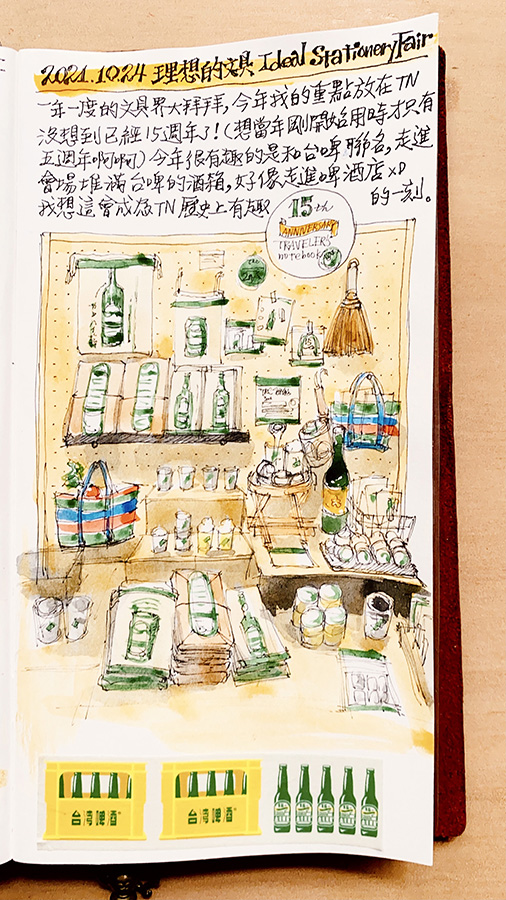 2021.10.24 理想的文具 Ideal Stationery Fair
一年一度的文具界大拜拜，今年我的重點放在TN
沒想到已經15週年了！（想當年剛開始用時才只有
五週年啊啊）今年很有趣的是和台啤聯名，走進
會場堆滿台啤的酒箱，好像走進啤酒店XD
我想這會成為TN歷史上有趣的一刻。
15th
ANNIVERSARY
TRAVELER'S
notebook
台湾啤酒
台湾啤酒